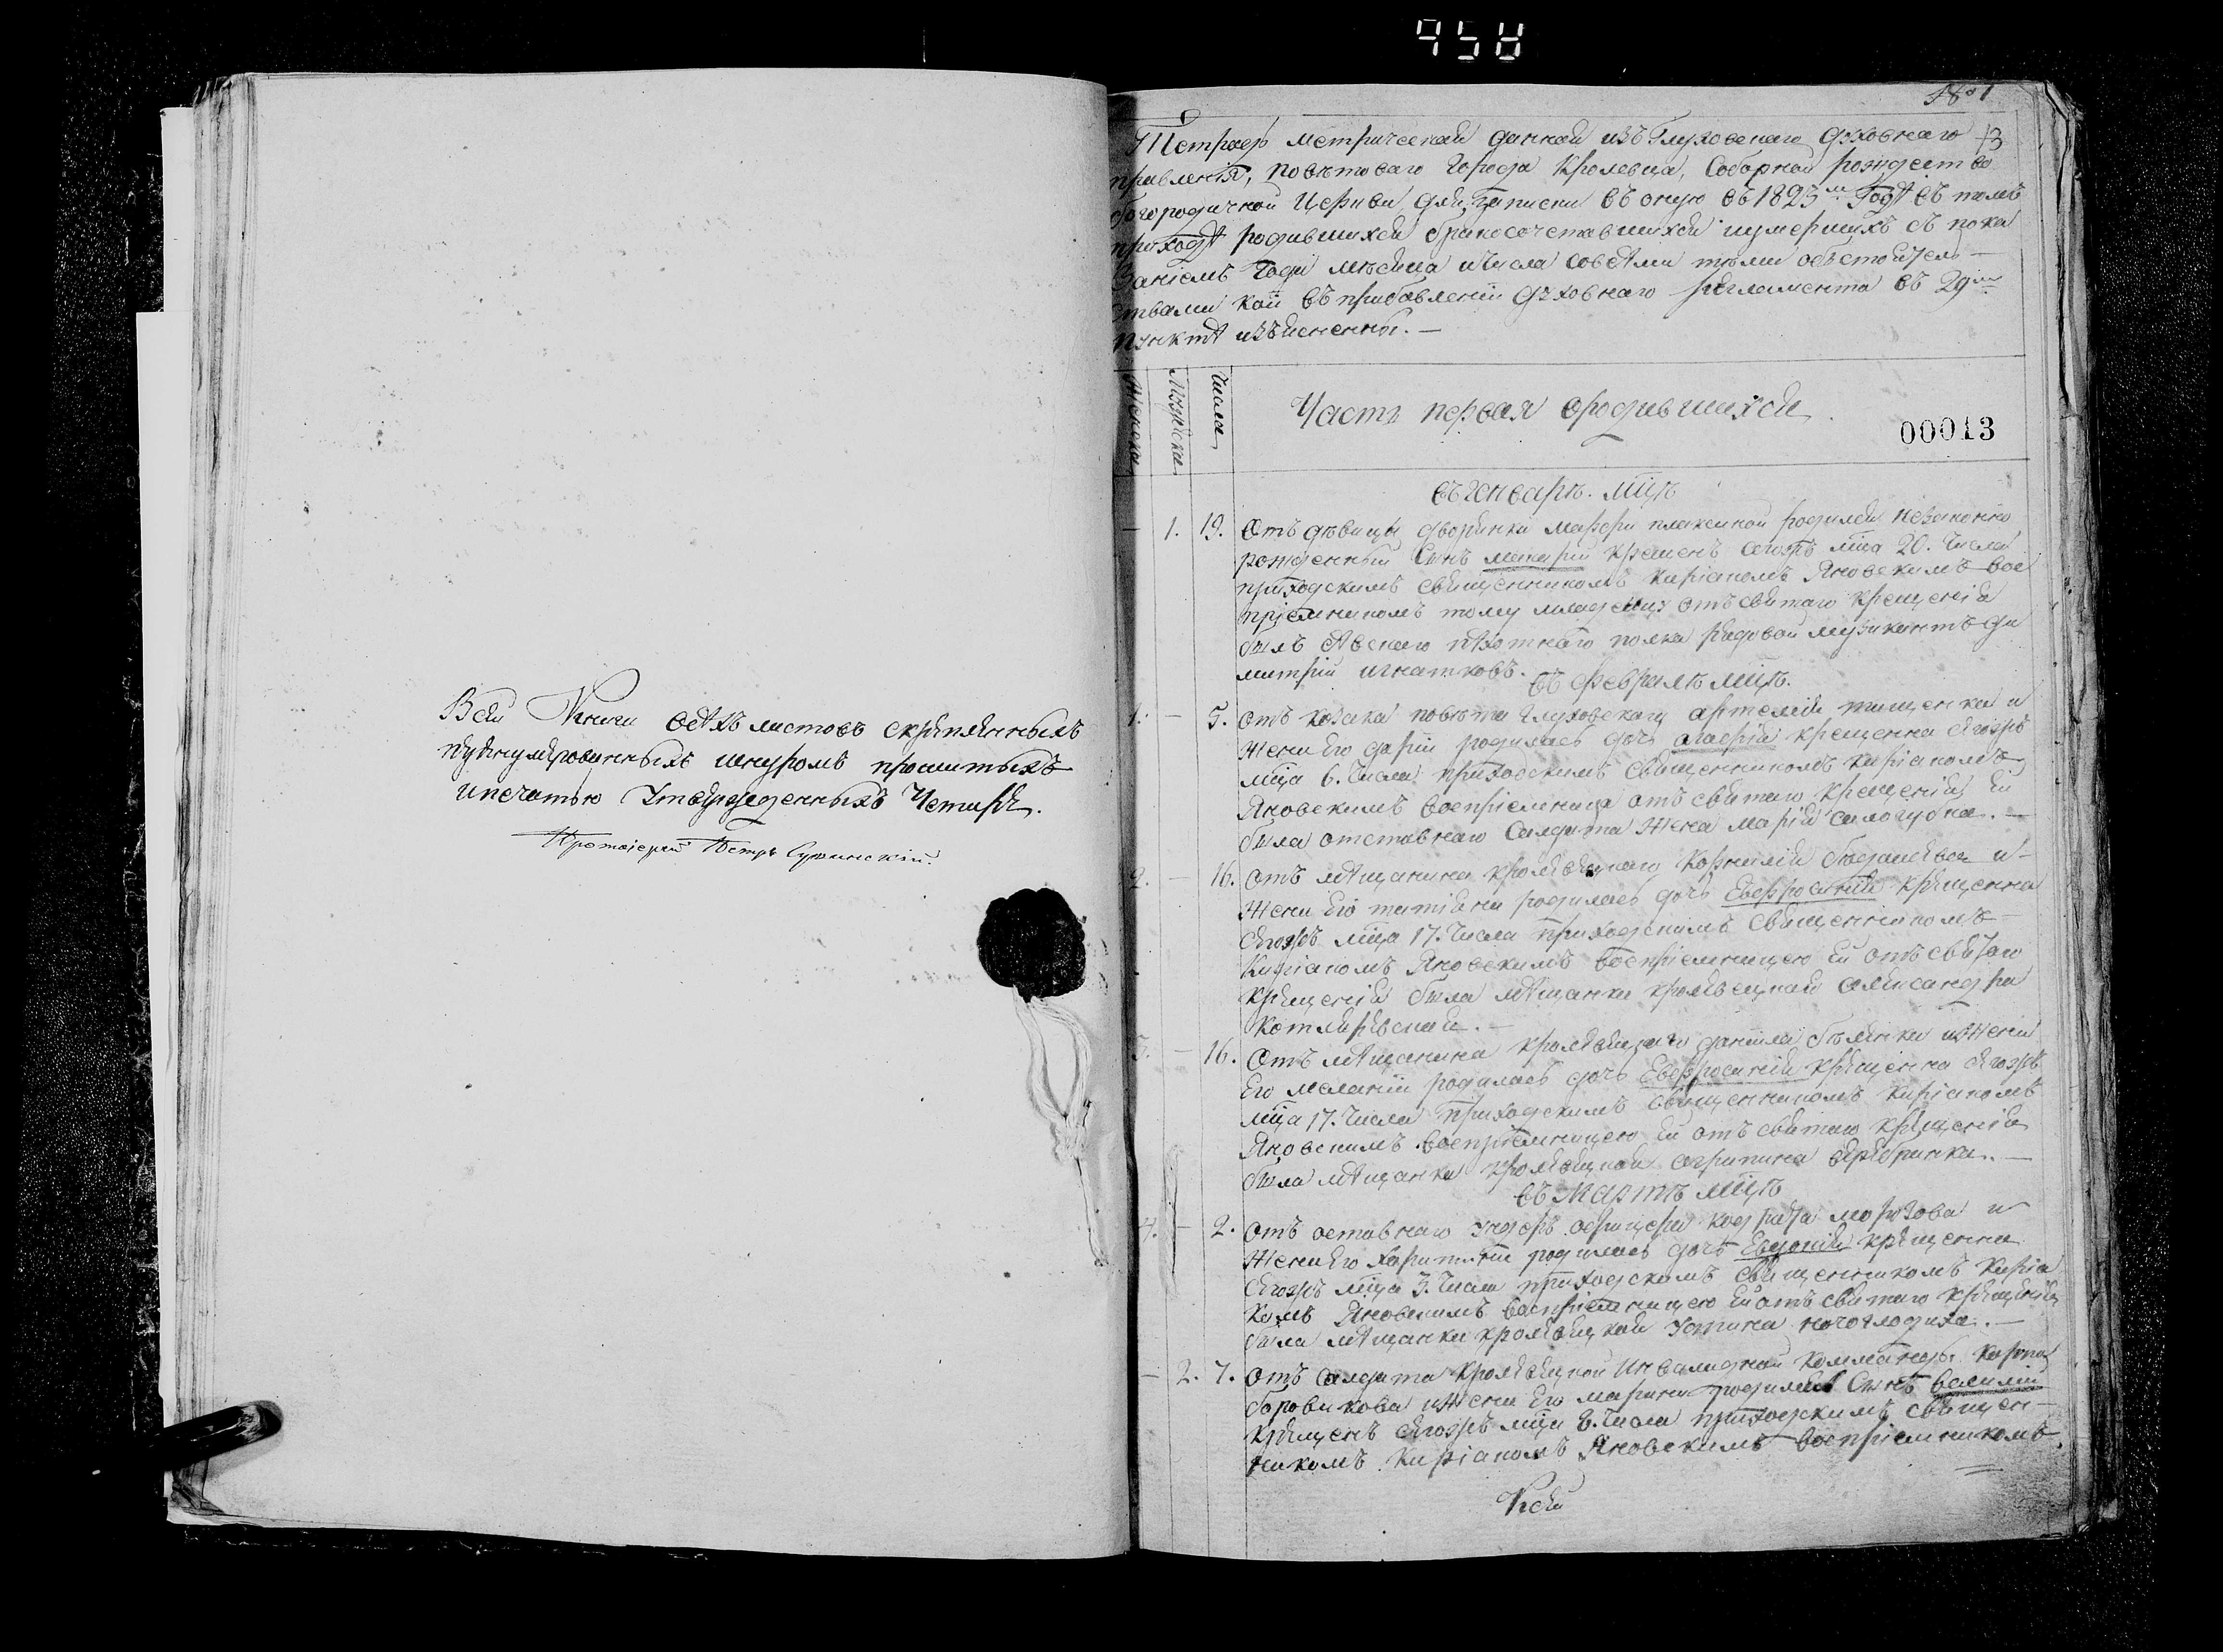 958
Всей Книги въ ней листовъ скрепленныхъ
пронумерованныхъ шнуромъ прошитыхъ
и печатью утвержденныхъ Четыре.
Протоіерей Петръ
№ 1
13
Тетрадь метрической данной изъ Глуховскаго духовнаго
правленія, повѣтоваго города Кролевца, Соборной рождество
богородичной Церкви для записки въ оную въ 1825м Годѣ въ томъ
приходѣ родившихся бракосочетавшихся и умершихъ съ пока
заніемъ года мѣсяца и числа совсѣми тѣми обстоятель-
ствами кои въ прибавленіи духовнаго регламента въ 29м
пунктѣ изъясненны. —
Женска Мужеска Числа
Часть первая о родившихся.
00013
въ Генварѣ мцѣ
— 1. 19. Отъ дѣвицы дворянки Марфы родился незаконно
рожденный Сынъ макарій крещенъ тогожъ мца 20. Числа
приходскимъ священникомъ Киріакомъ Яновскимъ вос
пріемникомъ тому младенцу отъ святаго крещенія
былъ Сѣвскаго пѣхотнаго полка рядовой музикантъ ди
митрій игнатковъ.
въ Февралѣ мцѣ.
1. — 5. отъ козака повѣта Глуховскаго артемія тищенка и
жены Его дарїи родилась дочь агафія крещенна тогожъ
мца 6. Числа приходскимъ священникомъ киріакомъ
Яновскимъ воспріемница отъ святаго крещенія Ей
была отставнаго Салдата жена марія
2. — 16. отъ мѣщанина кролевецкаго Корнилія и
жены Его татіаны родилась дочь Евфросинія крещенна
тогожъ мца 17. Числа приходскимъ священникомъ
Киріакомъ Яновскимъ воспріемницею Ей отъ святаго
крещенія была мѣщанка кролевецкая александра
Котляревская. —
3. — 16. отъ мѣщанина кролевецкаго даніила и жены
Его меланіи родилась дочь Евфросинія крещенна тогожъ
мца 17. Числа приходскимъ священникомъ киріакомъ
Яновскимъ воспріемницею Ей отъ святаго крещенія
была мѣщанка кролевецкая агрипина —
въ Мартѣ мцѣ
4. — 2. отъ оставнаго ундеръ офицера кодрата морозова и
жены Его Харитины родилась дочь Евдокія крещенна
тогожъ мца 3. Числа приходскимъ священникомъ киріа
комъ Яновскимъ воспріемницею Ей отъ святаго крещенія
была мѣщанка кролевецкая Устина —
— 2. 7. отъ Салдата кролевецкой Инвалидной комманды карпа
боровикова и жены Его марины родился Сынъ василій
крещенъ тогожъ мца 8. Числа приходскимъ священ-
никомъ Киріакомъ Яновскимъ воспріемникомъ